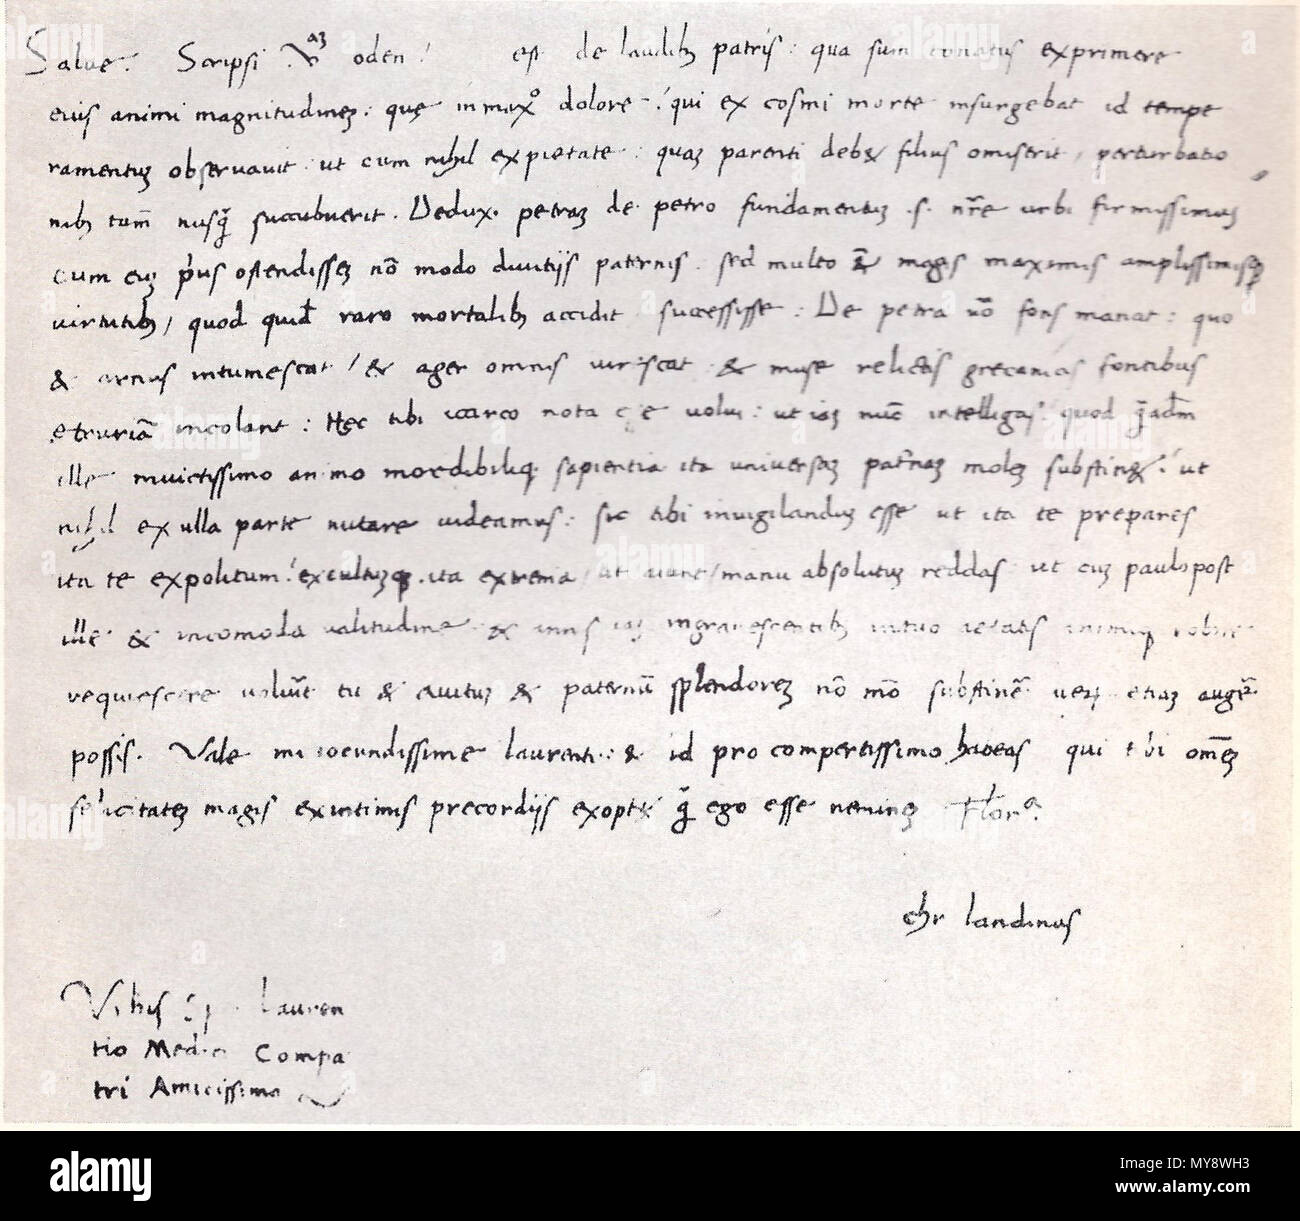 Salue. Scripsi oden! est de laudib; patris: qua sum conatus exprimere
eius animi magnitudinez: quę in maxº dolore! qui ex cosmi morte insurgebat id tempe
ramentuz obseruauit: ut cum nihil ex pietate: quaz parenti deb& filius omiserit, perturbatio
nib; tam̄ nusq̄ succubuerit. Dedux. petraz de petro fundamentuz .s. nr̄e urbi firmissimuz
cum eiz prius ostendissez nō modo diuitijs paternis. sed multo magis maximis amplissimisq;
uirtutib;, quod quid raro mortalib; accidit successisse: De petra uō fons manat: quo
& arnus intumescat! & ager omnis uiriscat & muse relictis grecanias fontibus
etruriā incolant: Hęc tibi icarco nota e uolui: ut iaz nūc intelligas. quod
ille inuictissimo animo incredibiliq; sapientia ita uniuersaz pat'naz molez substin&! ut
nihil ex ulla parte nutare uideamus: sic tibi inuigilanduz esse ut ita te prepares
ita te expolitum! excultuzq; ita extrema, ut aiunt, manu absolutuz reddas ut cuz paulo post
ille & incomoda ualitudine & annis iaz ingrauescentib; tuo aetatis robore
requiescere uoluīt tu & auituz & paternū splendorez nō mō substinē. uerz etiaz augēr
possis. Vale mi iocundissime laurenti: & id pro compertissimo habeas qui tibi omēz
felicitatez magis ex intimis precordijs exopt& q̄ ego esse neminez Flor.ª
chr landinus
Lauren
tio Medici Compa
tri Amicissimo
alamy
Image ID: MY8WH3
www.alamy.com